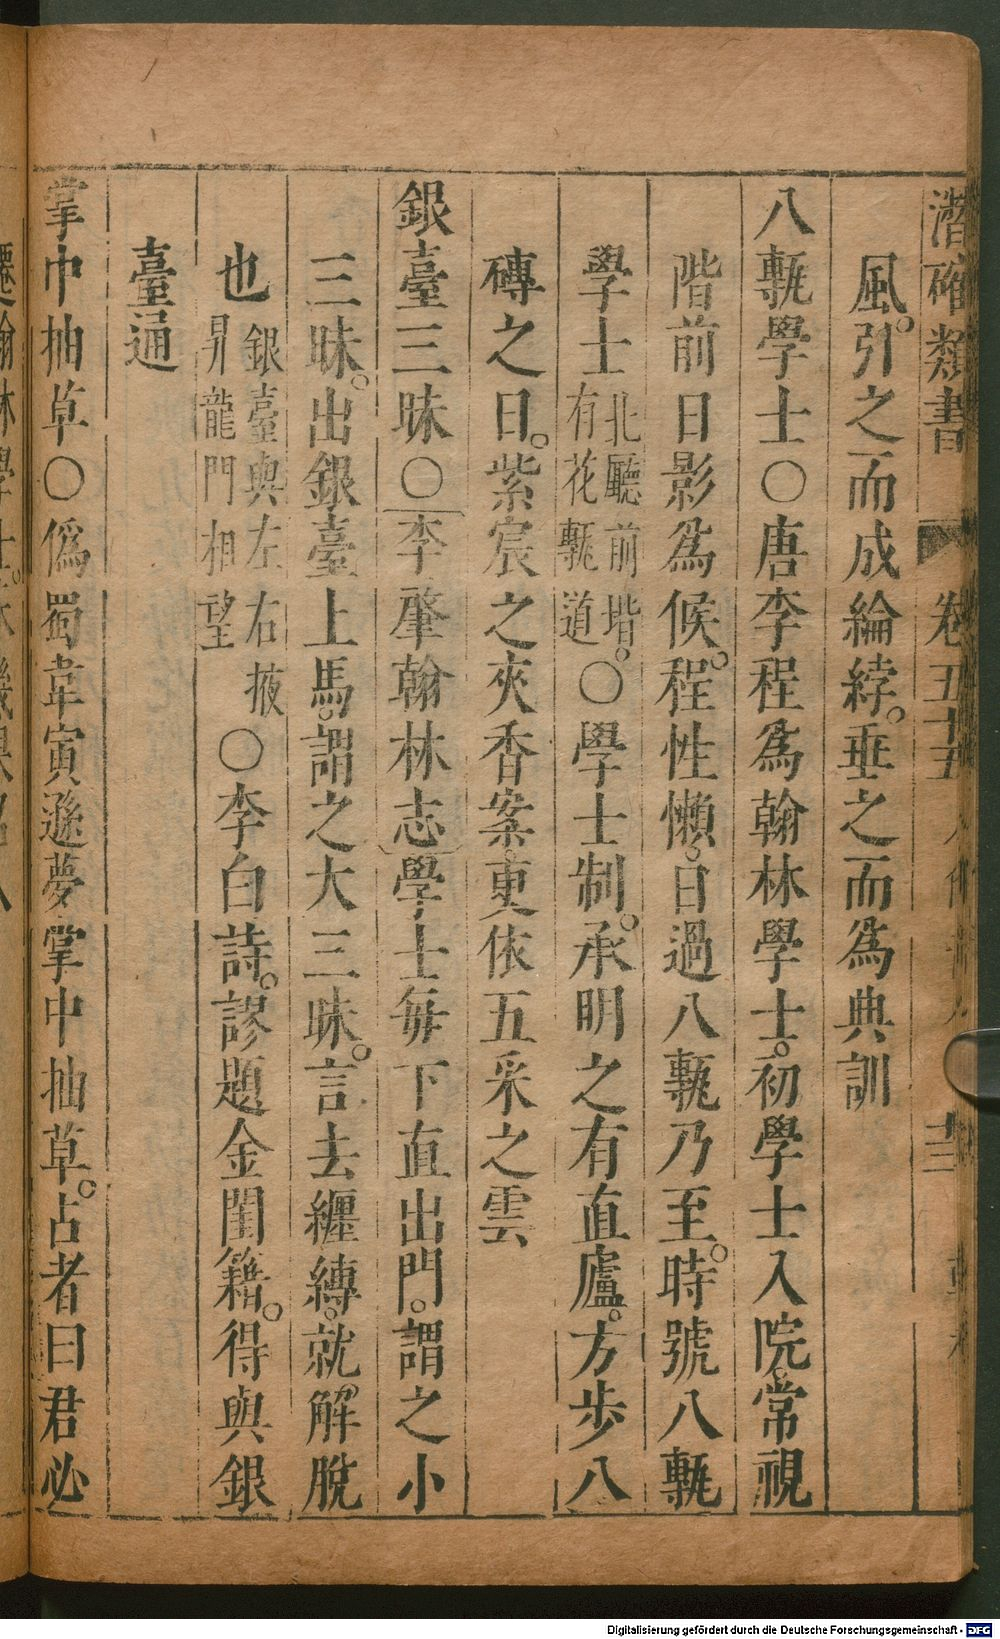 潛確類書 卷五十五 二十三
風引之而成綸綍。垂之而爲典訓
八甎學士〇唐李程爲翰林學士。初學士入院。常視
階前日影爲候。程性懶。日過八甎乃至。時號八甎
學士北廳前堦。有花甎道〇學士制。承明之有直廬。方步八
磚之日。紫宸之夾香案。更依五采之雲
銀臺三昧〇李肇翰林志學士每下直出門。謂之小
三昧。出銀臺上馬。謂之大三昧。言去纏縛。就解脫
也銀臺與左右掖昇龍門相望〇李白詩。謬題金閨籍。得與銀
臺通
掌中抽草〇僞蜀韋寅遜夢掌中抽草。占者曰君必
Digitalisierung gefördert durch die Deutsche Forschungsgemeinschaft - DFG